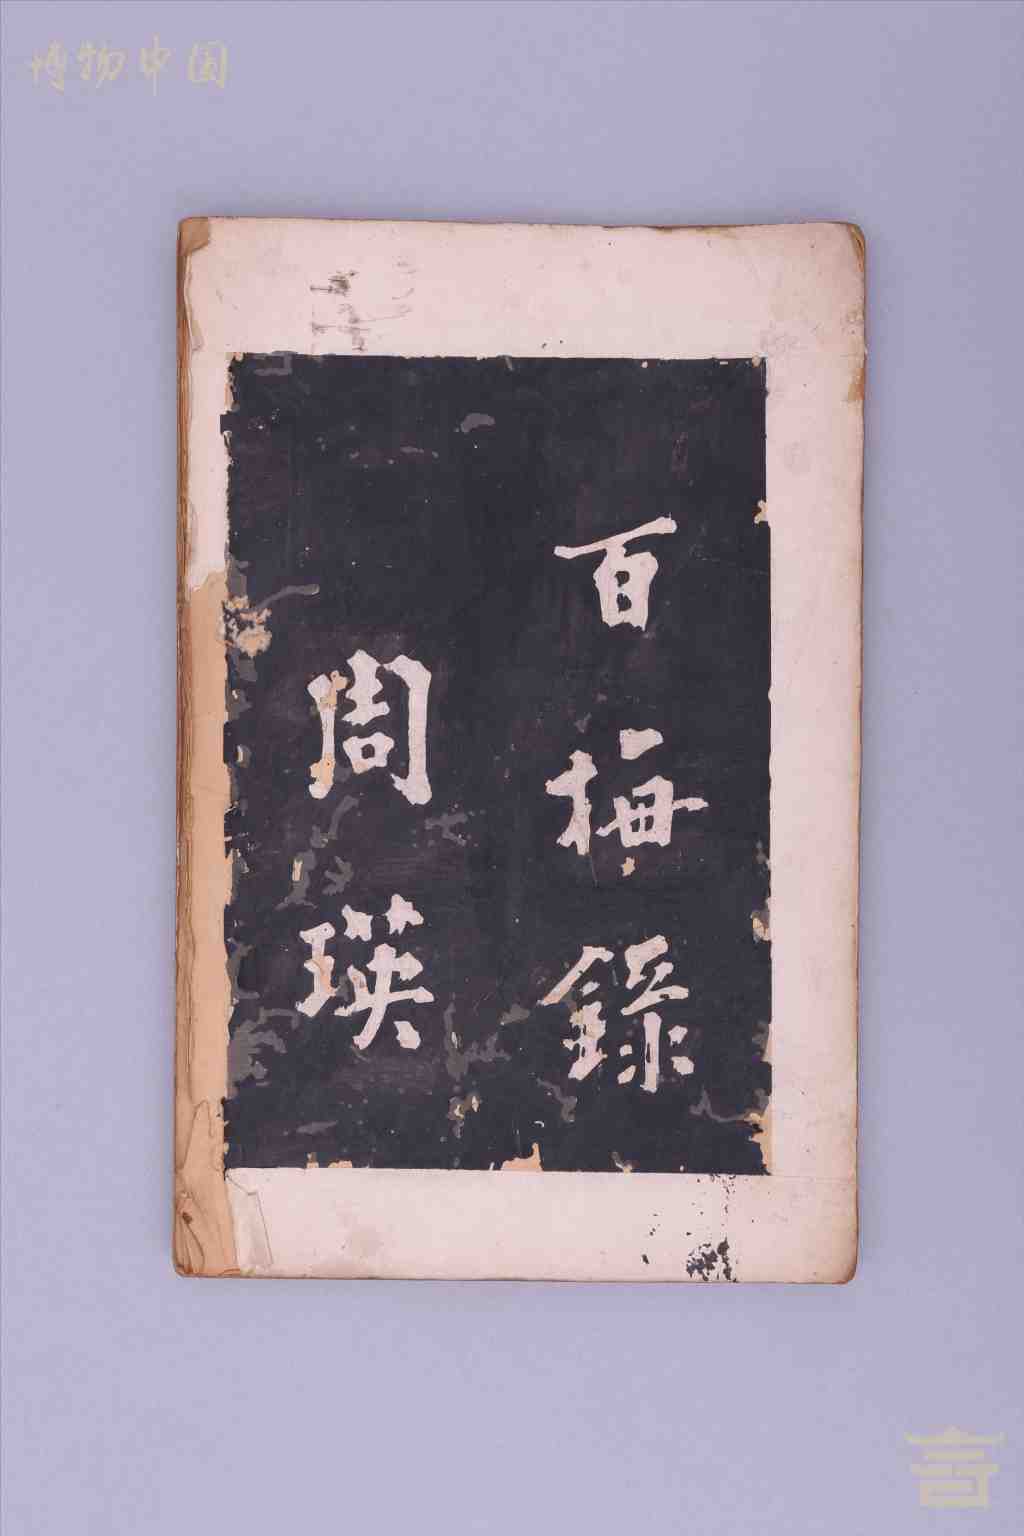 博物中国
百梅録
周瑛